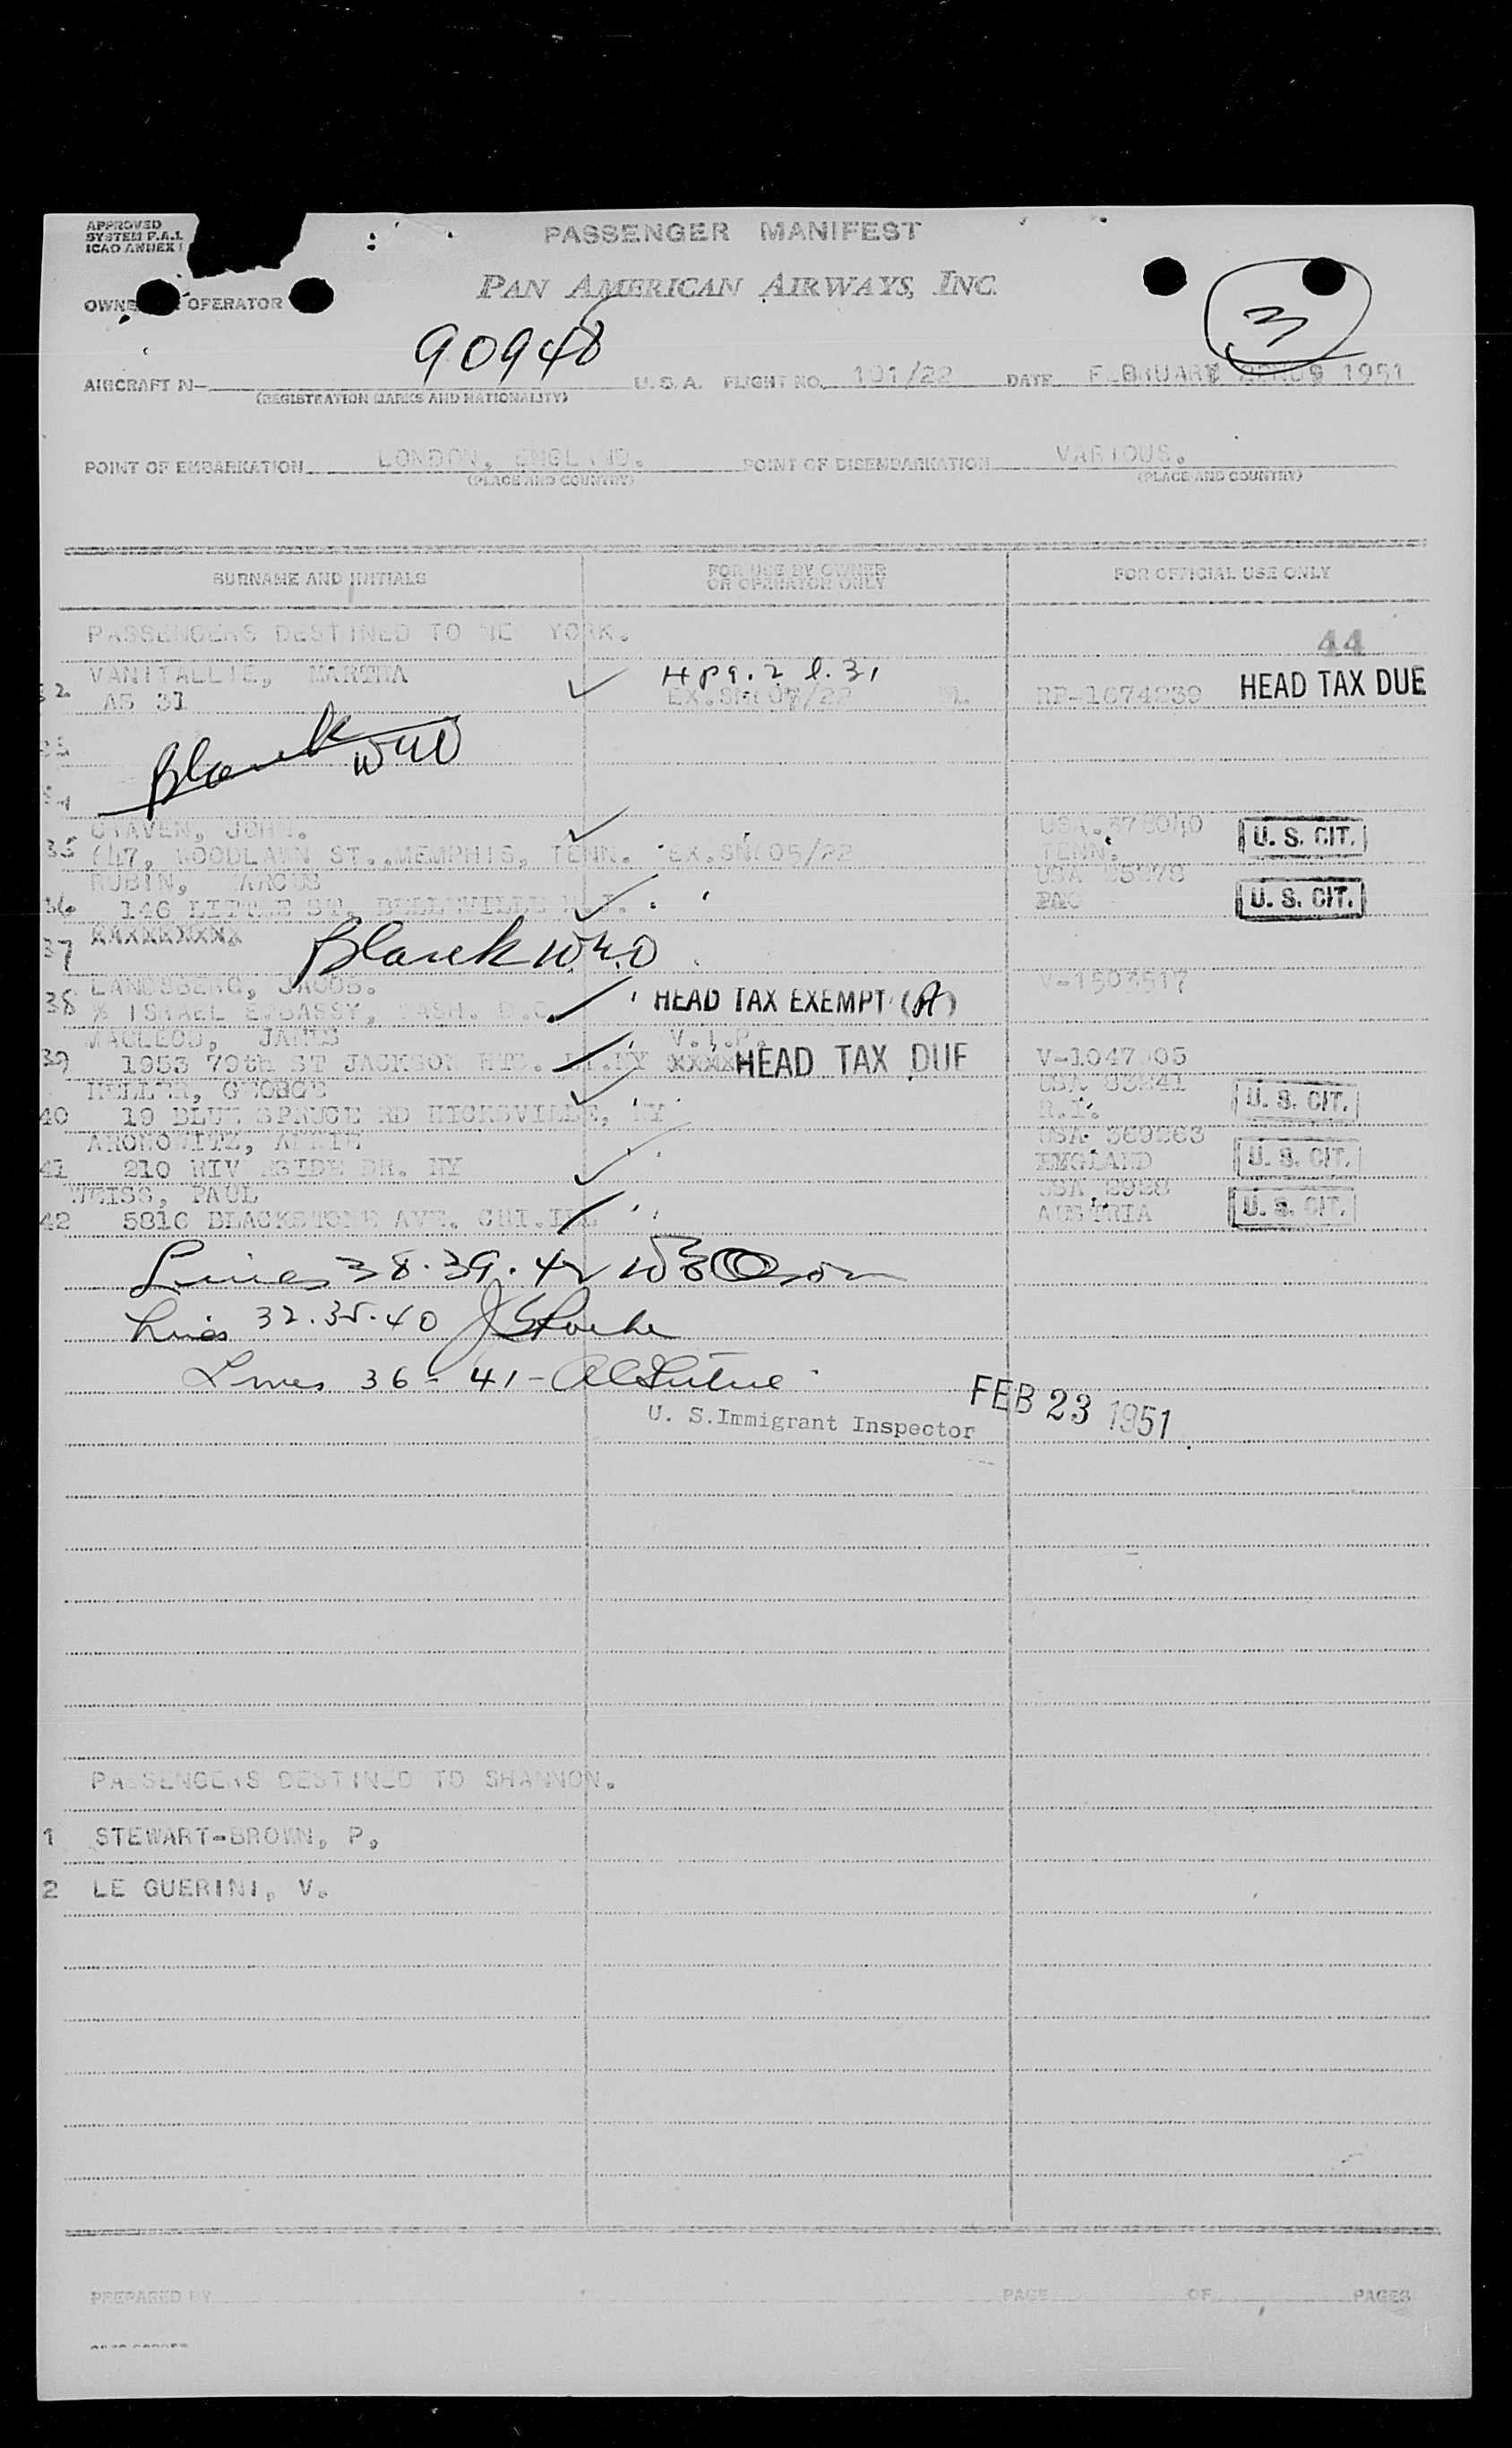 APPROVED
SYSTEM F.A.L.
ICAO ANNEX
PASSENGER MANIFEST
OPERATOR
PAN AMERICAN AIRWAYS, INC.
3
AIRCRAFT N- 90948 U. S. A. FLIGHT NO. 101/22 DATE FEBRUARY 1951
(REGISTRATION MARKS AND NATIONALITY)
POINT OF EMBARKATION LONDON, ENGLAND. POINT OF DISEMBARKATION VARIOUS.
(PLACE AND COUNTRY) (PLACE AND COUNTRY)
SURNAME AND INITIALS FOR USE BY OWNER OR OPERATOR ONLY FOR OFFICIAL USE ONLY
PASSENGERS DESTINED TO NE YORK. 44
VANITALLIE, MARTHA H pg. 2 l. 31
32 AS 31 EX.SN 07/22 RP-1674239 HEAD TAX DUE
Blank
JOHN.
35 647, WOODLAWN ST., MEMPHIS, TENN. EX.SN605/22 TENN. U. S. CIT.
RUBIN, MARCUS
36 146 LITTLE ST, BELLEVILLE N.J. U. S. CIT.
XXXXXXXX
37 Blank
LANDSBERG, JACOB. V-1503517
38 % ISRAEL EMBASSY, WASH. D.C. HEAD TAX EXEMPT (A)
MACLEOD, JAMES V.I.P.
39 1953 79th ST JACKSON HTS. NY XXXX HEAD TAX DUE V-1047 05
HELLER, GEORGE USA 83241
40 19 BLUE SPRUCE RD HICKSVILLE, NY U. S. CIT.
ARONOWITZ, USA 369263
41 210 RIV RSIDE DR. NY ENGLAND U. S. CIT.
WEISS, PAUL USA 2928
42 5816 BLACKSTONE AVE. CHI.ILL AUSTRIA U. S. CIT.
Lines 38.39.42
Lines 32.35.40
Lines 36 - 41 -
U. S. Immigrant Inspector FEB 23 1951
PASSENGERS DESTINED TO SHANNON.
1 STEWART-BROWN, P.
2 LE GUERINI, V.
PREPARED BY PAGE OF PAGES